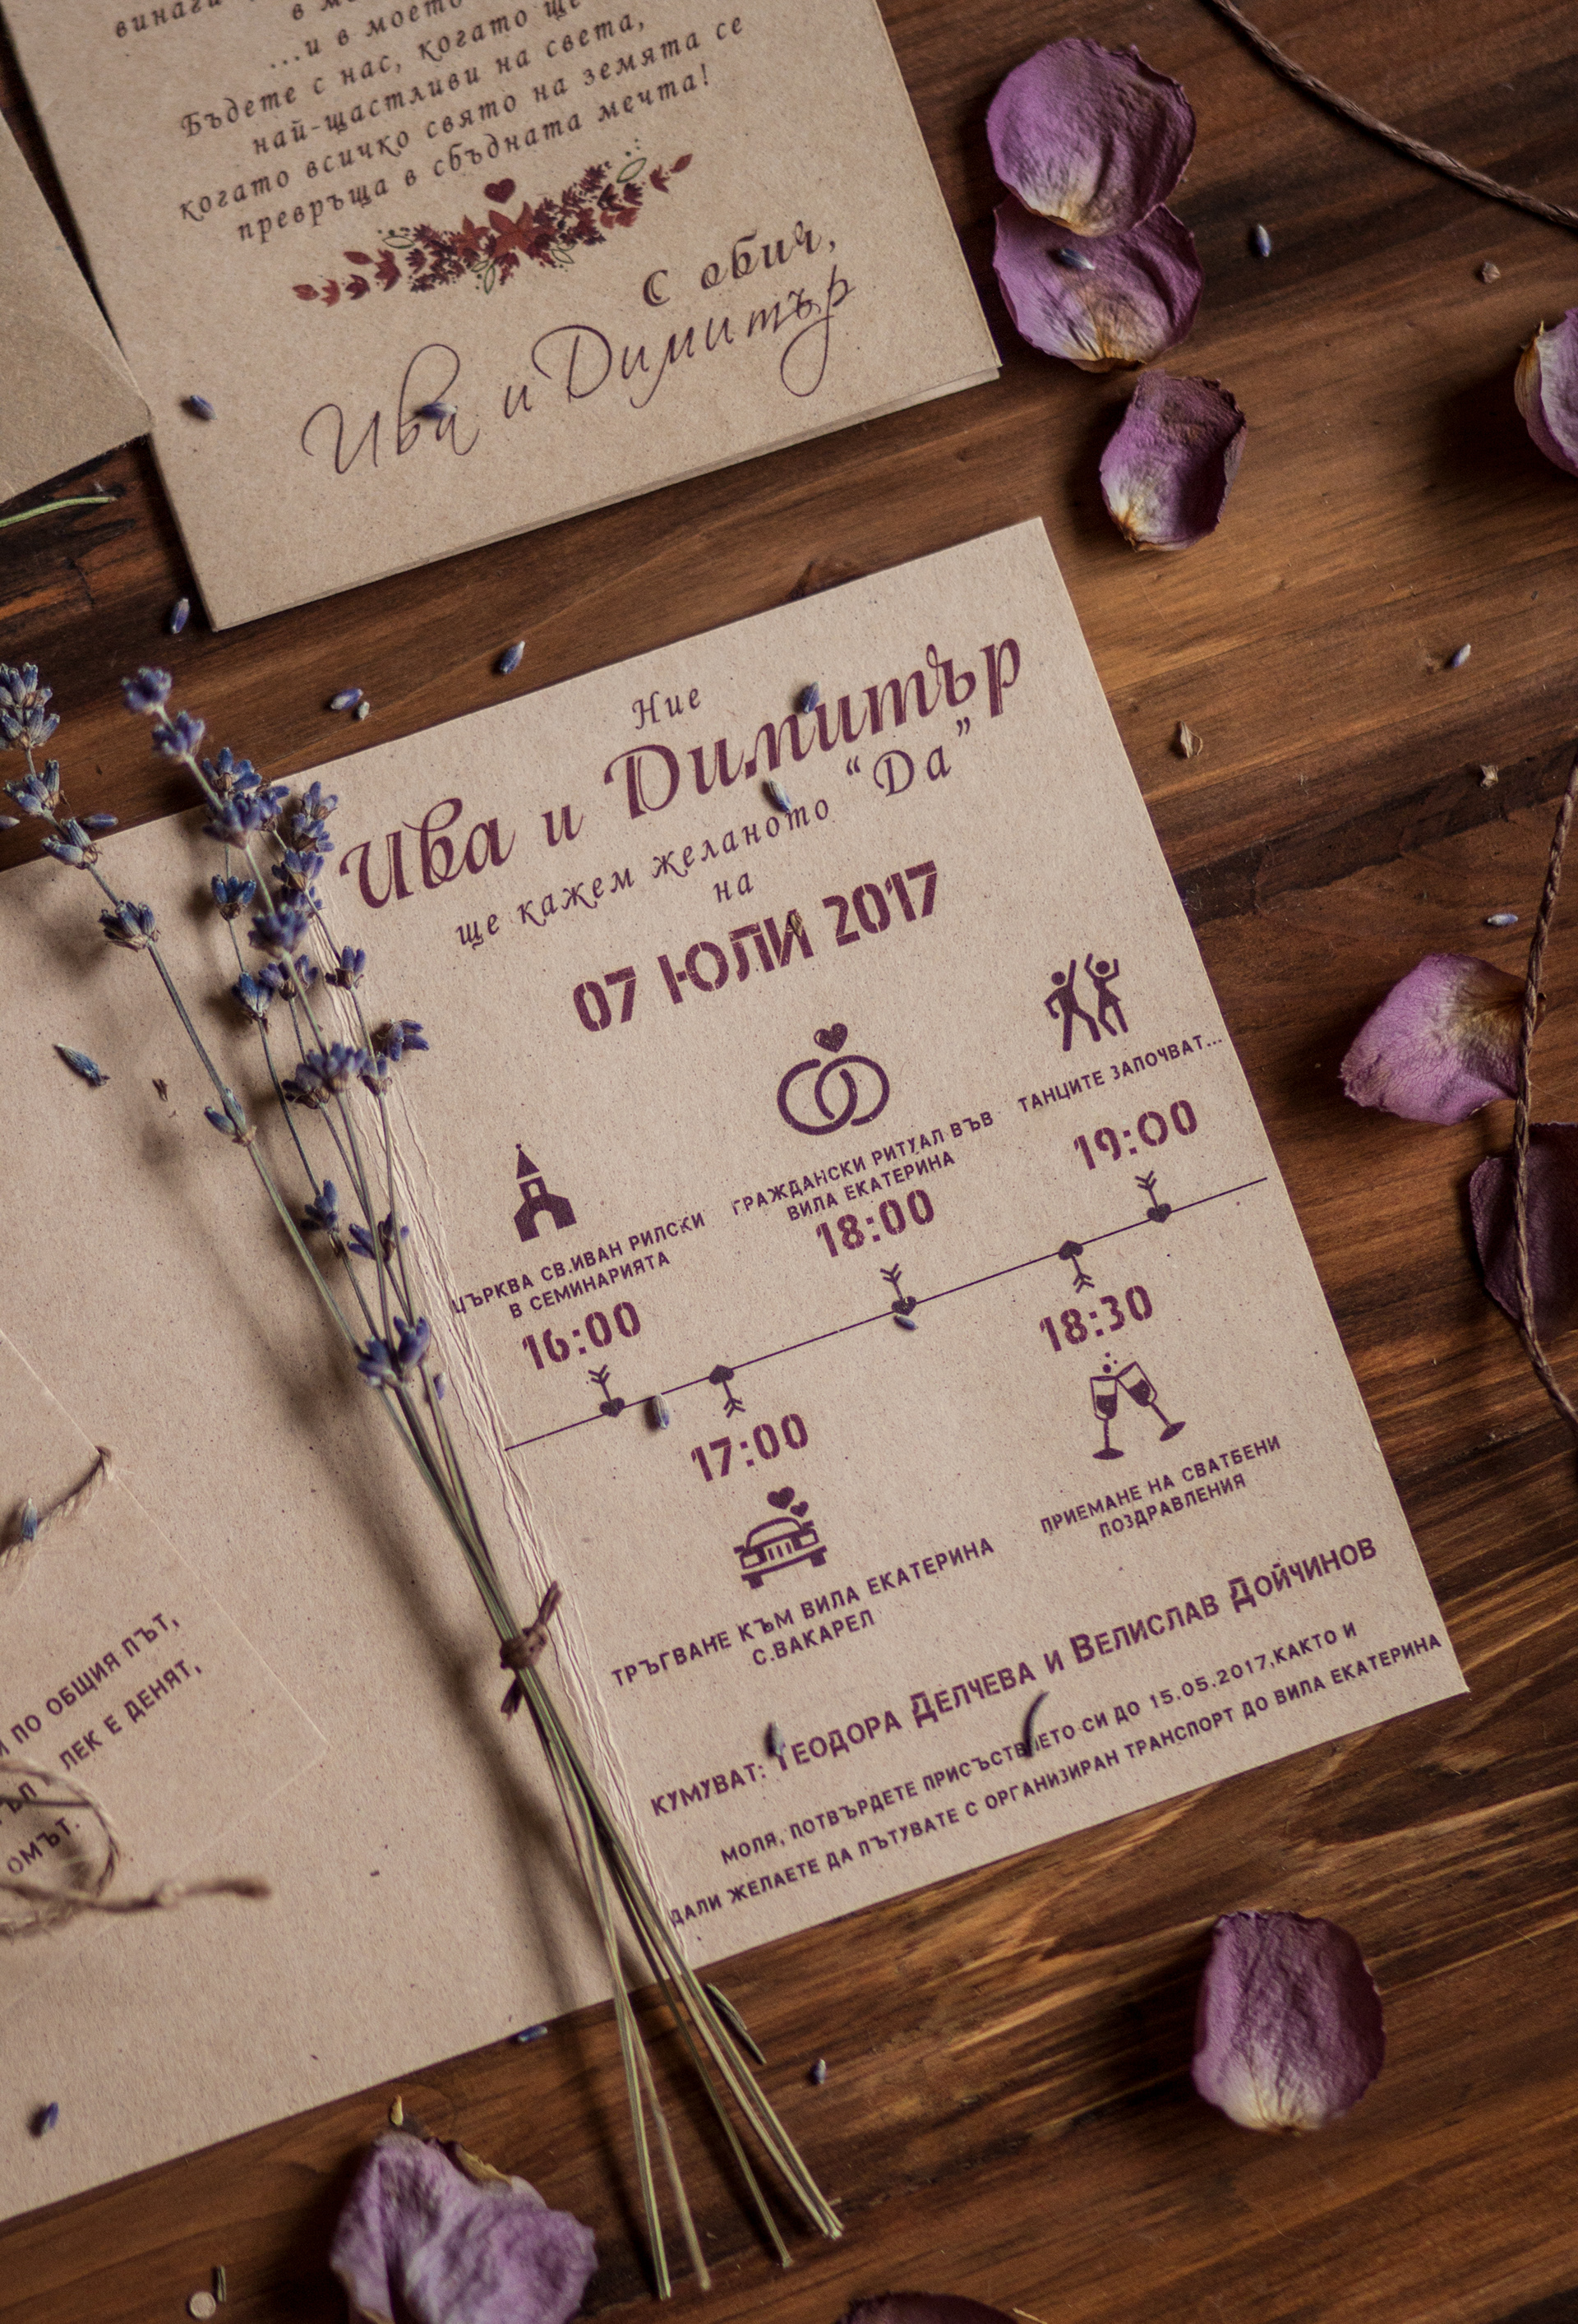 винаги
в
...и в моето
Бъдете с нас, когато ще
най-щастливи на света,
когато всичко свято на земята се
превръща в сбъдната мечта!
С обич,
Ива и Димитър
Ние
Ива и Димитър
ще кажем желаното “Да”
на
07 ЮЛИ 2017
ТАНЦИТЕ ЗАПОЧВАТ...
19:00
ГРАЖДАНСКИ РИТУАЛ ВЪВ
ВИЛА ЕКАТЕРИНА
18:00
ЦЪРКВА СВ.ИВАН РИЛСКИ
В СЕМИНАРИЯТА
16:00
17:00
ТРЪГВАНЕ КЪМ ВИЛА ЕКАТЕРИНА
С.ВАКАРЕЛ
18:30
ПРИЕМАНЕ НА СВАТБЕНИ
ПОЗДРАВЛЕНИЯ
КУМУВАТ: ТЕОДОРА ДЕЛЧЕВА И ВЕЛИСЛАВ ДОЙЧИНОВ
МОЛЯ, ПОТВЪРДЕТЕ ПРИСЪСТВИЕТО СИ ДО 15.05.2017,КАКТО И
ДАЛИ ЖЕЛАЕТЕ ДА ПЪТУВАТЕ С ОРГАНИЗИРАН ТРАНСПОРТ ДО ВИЛА ЕКАТЕРИНА
ПО ОБЩИЯ ПЪТ,
ЛЕК Е ДЕНЯТ,